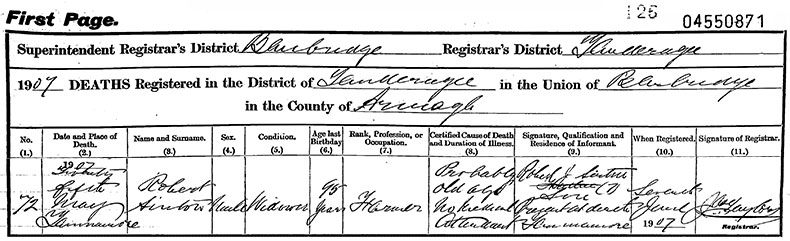 First Page.
126
04550871
Superintendent Registrar's District Banbridge Registrar's District Tanderagee
1907 DEATHS Registered in the District of Tanderagee in the Union of Banbridge
in the County of Armagh
No. (1.)
Date and Place of Death. (2.)
Name and Surname. (3.)
Sex. (4.)
Condition. (5.)
Age last Birthday (6.)
Rank, Profession, or Occupation. (7.)
Certified Cause of Death and Duration of Illness. (8.)
Signature, Qualification and Residence of Informant. (9.)
When Registered. (10.)
Signature of Registrar. (11.)
72
1907
Twenty
fifth
May
Robert
Male
Widower
95
years
Farmer
Probably
old age
No medical
attendant
Robert J
Son
Present at death
Seventh
June
1907
Registrar.